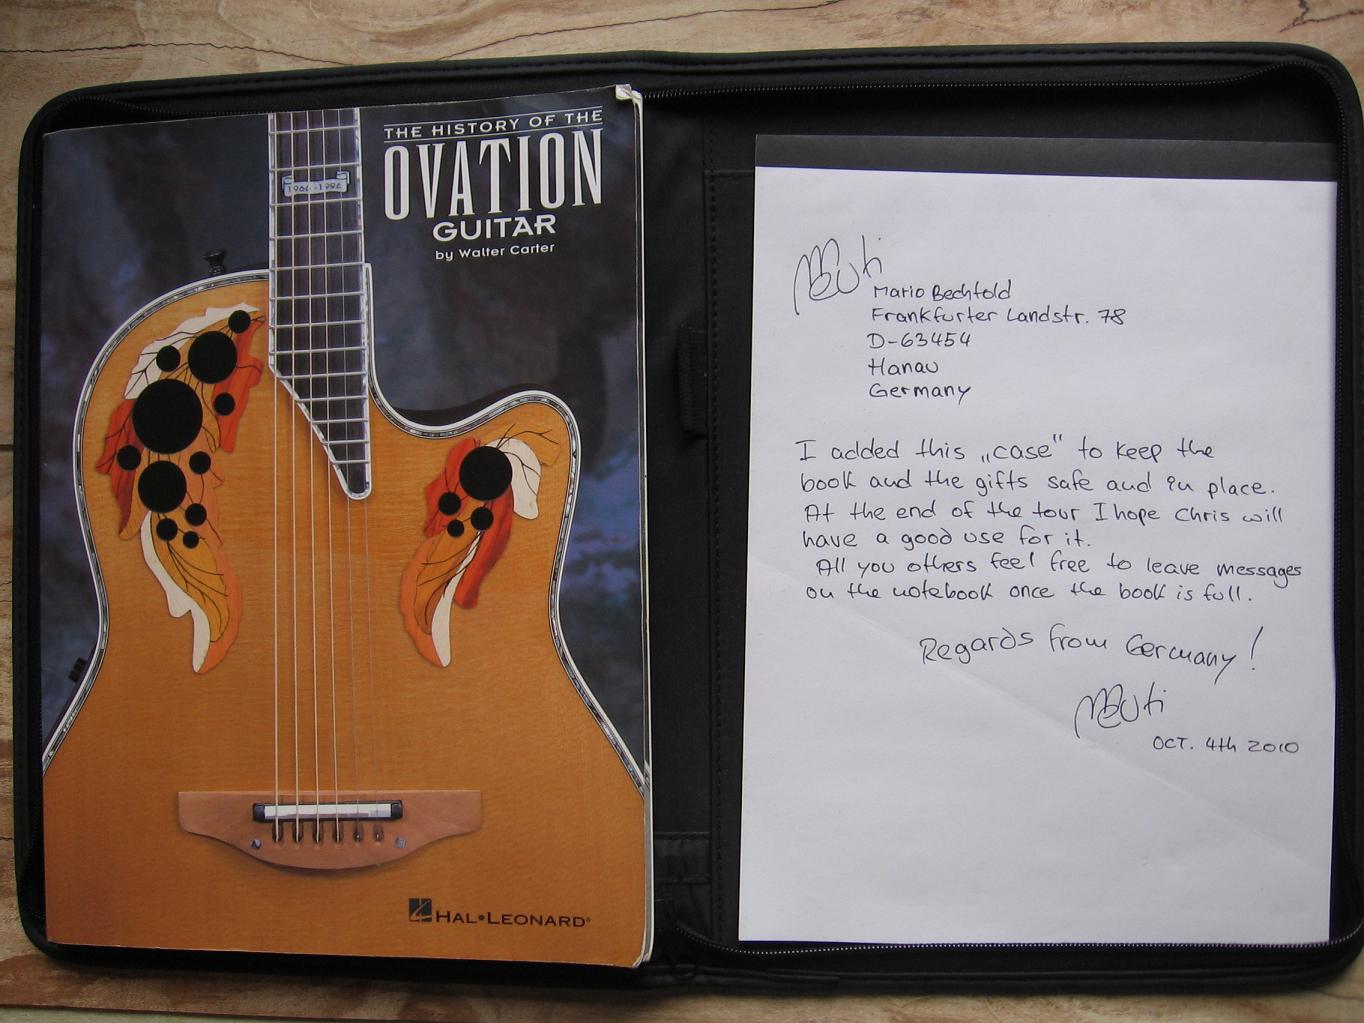 THE HISTORY OF THE
OVATION
GUITAR
by Walter Carter
1966-1996
HAL•LEONARD®
Mario Bechtold
Frankfurter Landstr. 78
D-63454
Hanau
Germany
I added this „case" to keep the
book and the gifts safe and in place.
At the end of the tour I hope Chris will
have a good use for it.
All you others feel free to leave messages
on the notebook once the book is full.
Regards from Germany!
OCT. 4th 2010